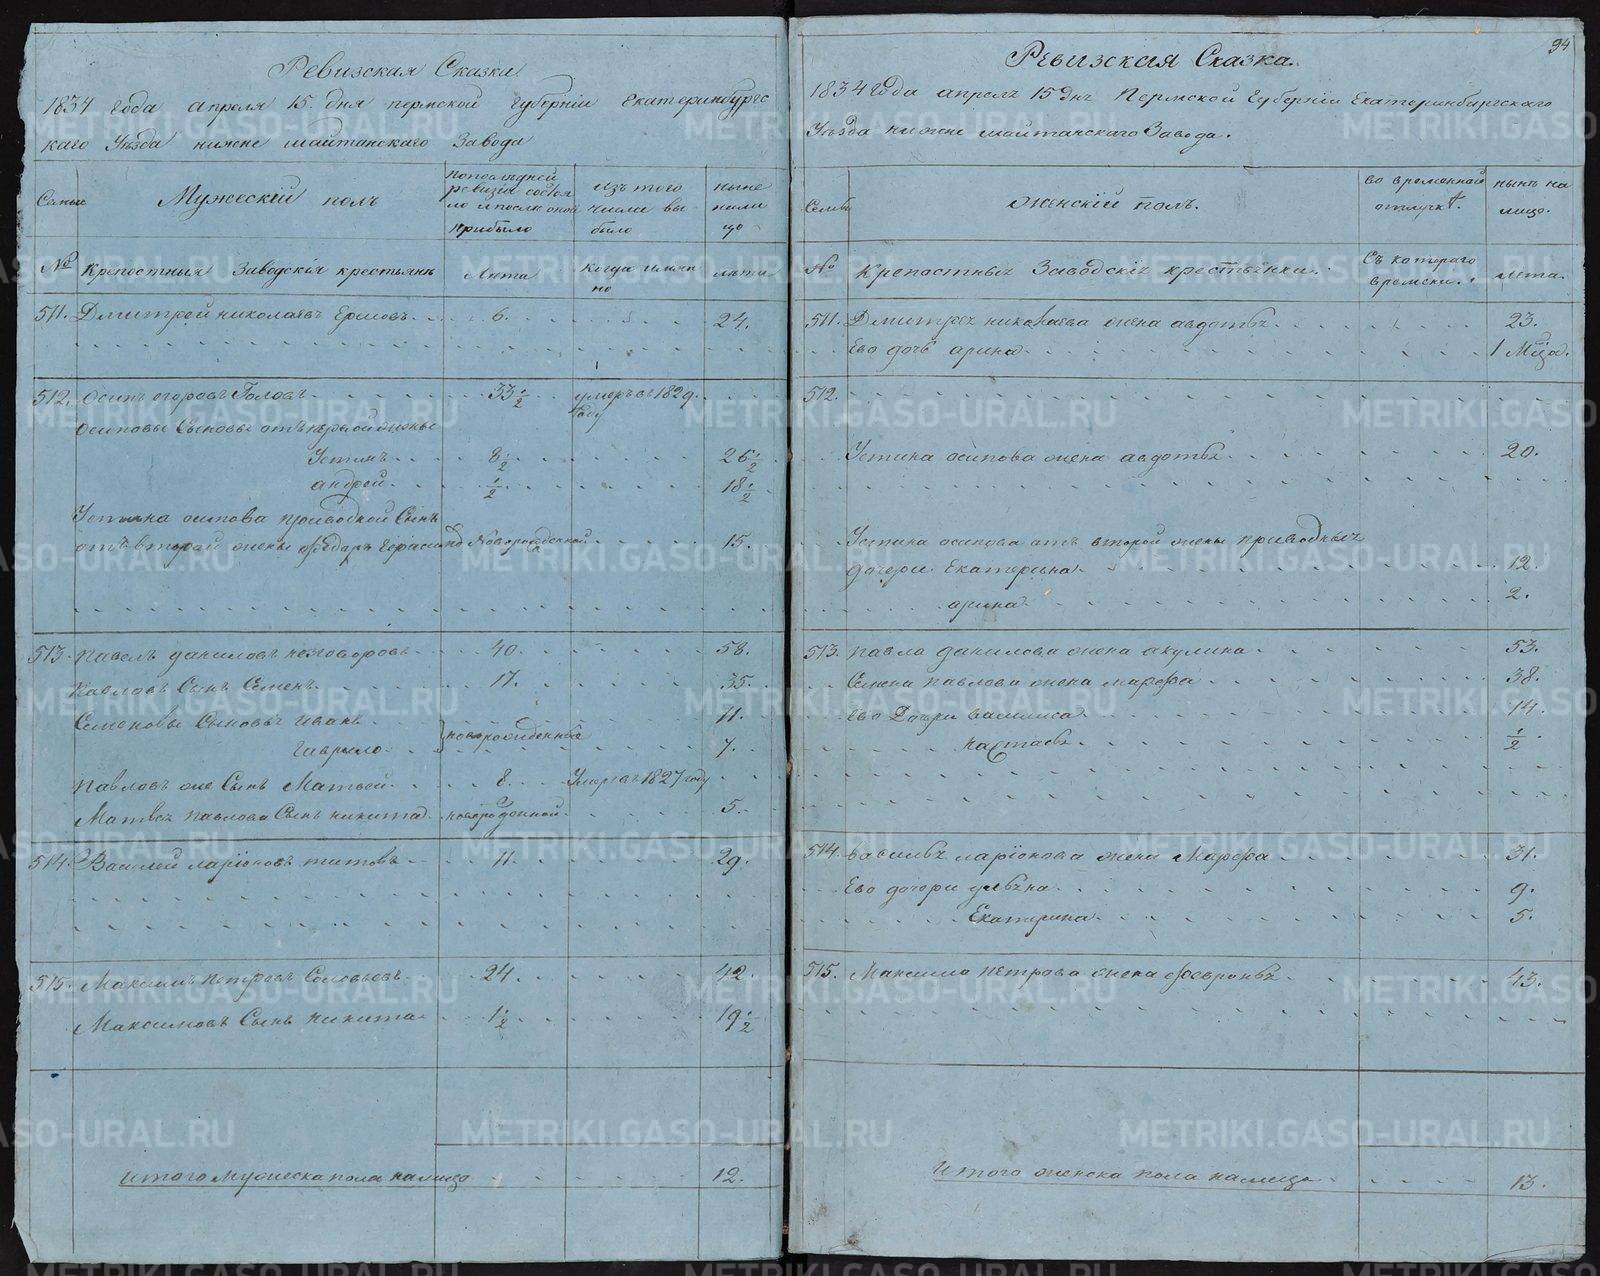 Ревизская Сказка
1834 года апреля 15. дня пермской губерніи Екатеринбургс
каго Уѣзда нижне шайтанскаго Завода
Семьи
Мужескій полъ
по последней
ревизіи состоя
ло и после оной
прибыло
изъ того
числа вы
было
ныне
нали
цо
№
Крепостныя Заводскія крестьяне
Лета
когда имян
но
лета
511. Дмитрей николаевъ Ершовъ 6. 24.
512. Осипъ егоровъ Голов 33 1/2 умеръ въ 1829.
году
Осиповы Сыновья отъ первой жены
Устинъ 8 1/2 26 1/2
андрей 1/2 18 1/2
Устина осипова приводной Сынъ
отъ второй жены Федаръ Герасимов Новорожденной 15.
513. Павелъ даниловъ неговоровъ 40. 58.
Павловъ Сынъ Семенъ 17. 35.
Семеновы Сыновья Иванъ 11.
новорожденные
Гаврило 7.
Павловъ же Сынъ Матвей 8. Умеръ въ 1827 году
Матвея Павлова Сынъ никита новорожденной 5.
514. Василей ларіоновъ титовъ 11. 29.
515. Максимъ Петровъ Соловьевъ 24. 42.
Максимовъ Сынъ никита 1 1/2 19 1/2
Итого Мужеска пола налицо 12.
94
Ревизская Сказка.
1834 года апреля 15 дня Пермской Губерніи Екатеринбургскаго
Уѣзда нижне шайтанскаго Завода.
Семьи
Женскій полъ.
во временной
отлучкѣ.
нынѣ на
лицо.
№
Крепостныя Заводскія крестьянки.
Съ котораго
времени.
лета.
511. Дмитрея николаева жена авдотья 23.
Ево дочь арина 1 Мѣца.
512.
Устина осипова жена авдотья 20.
Устина осипова отъ второй жены приводныя
дочери Екатерина 12.
арина 2.
513. Павла данилова жена акулина 53.
Семена Павлова жена марфа 38.
Ево Дочери василиса 14.
настасья 1/2
514. Василья ларіонова жена Марфа 31.
Ево дочери ульяна 9.
Екатерина 5.
515. Максима Петрова жена Февронья 43.
Итого женска пола налицо 13.
METRIKI.GASO-URAL.RU